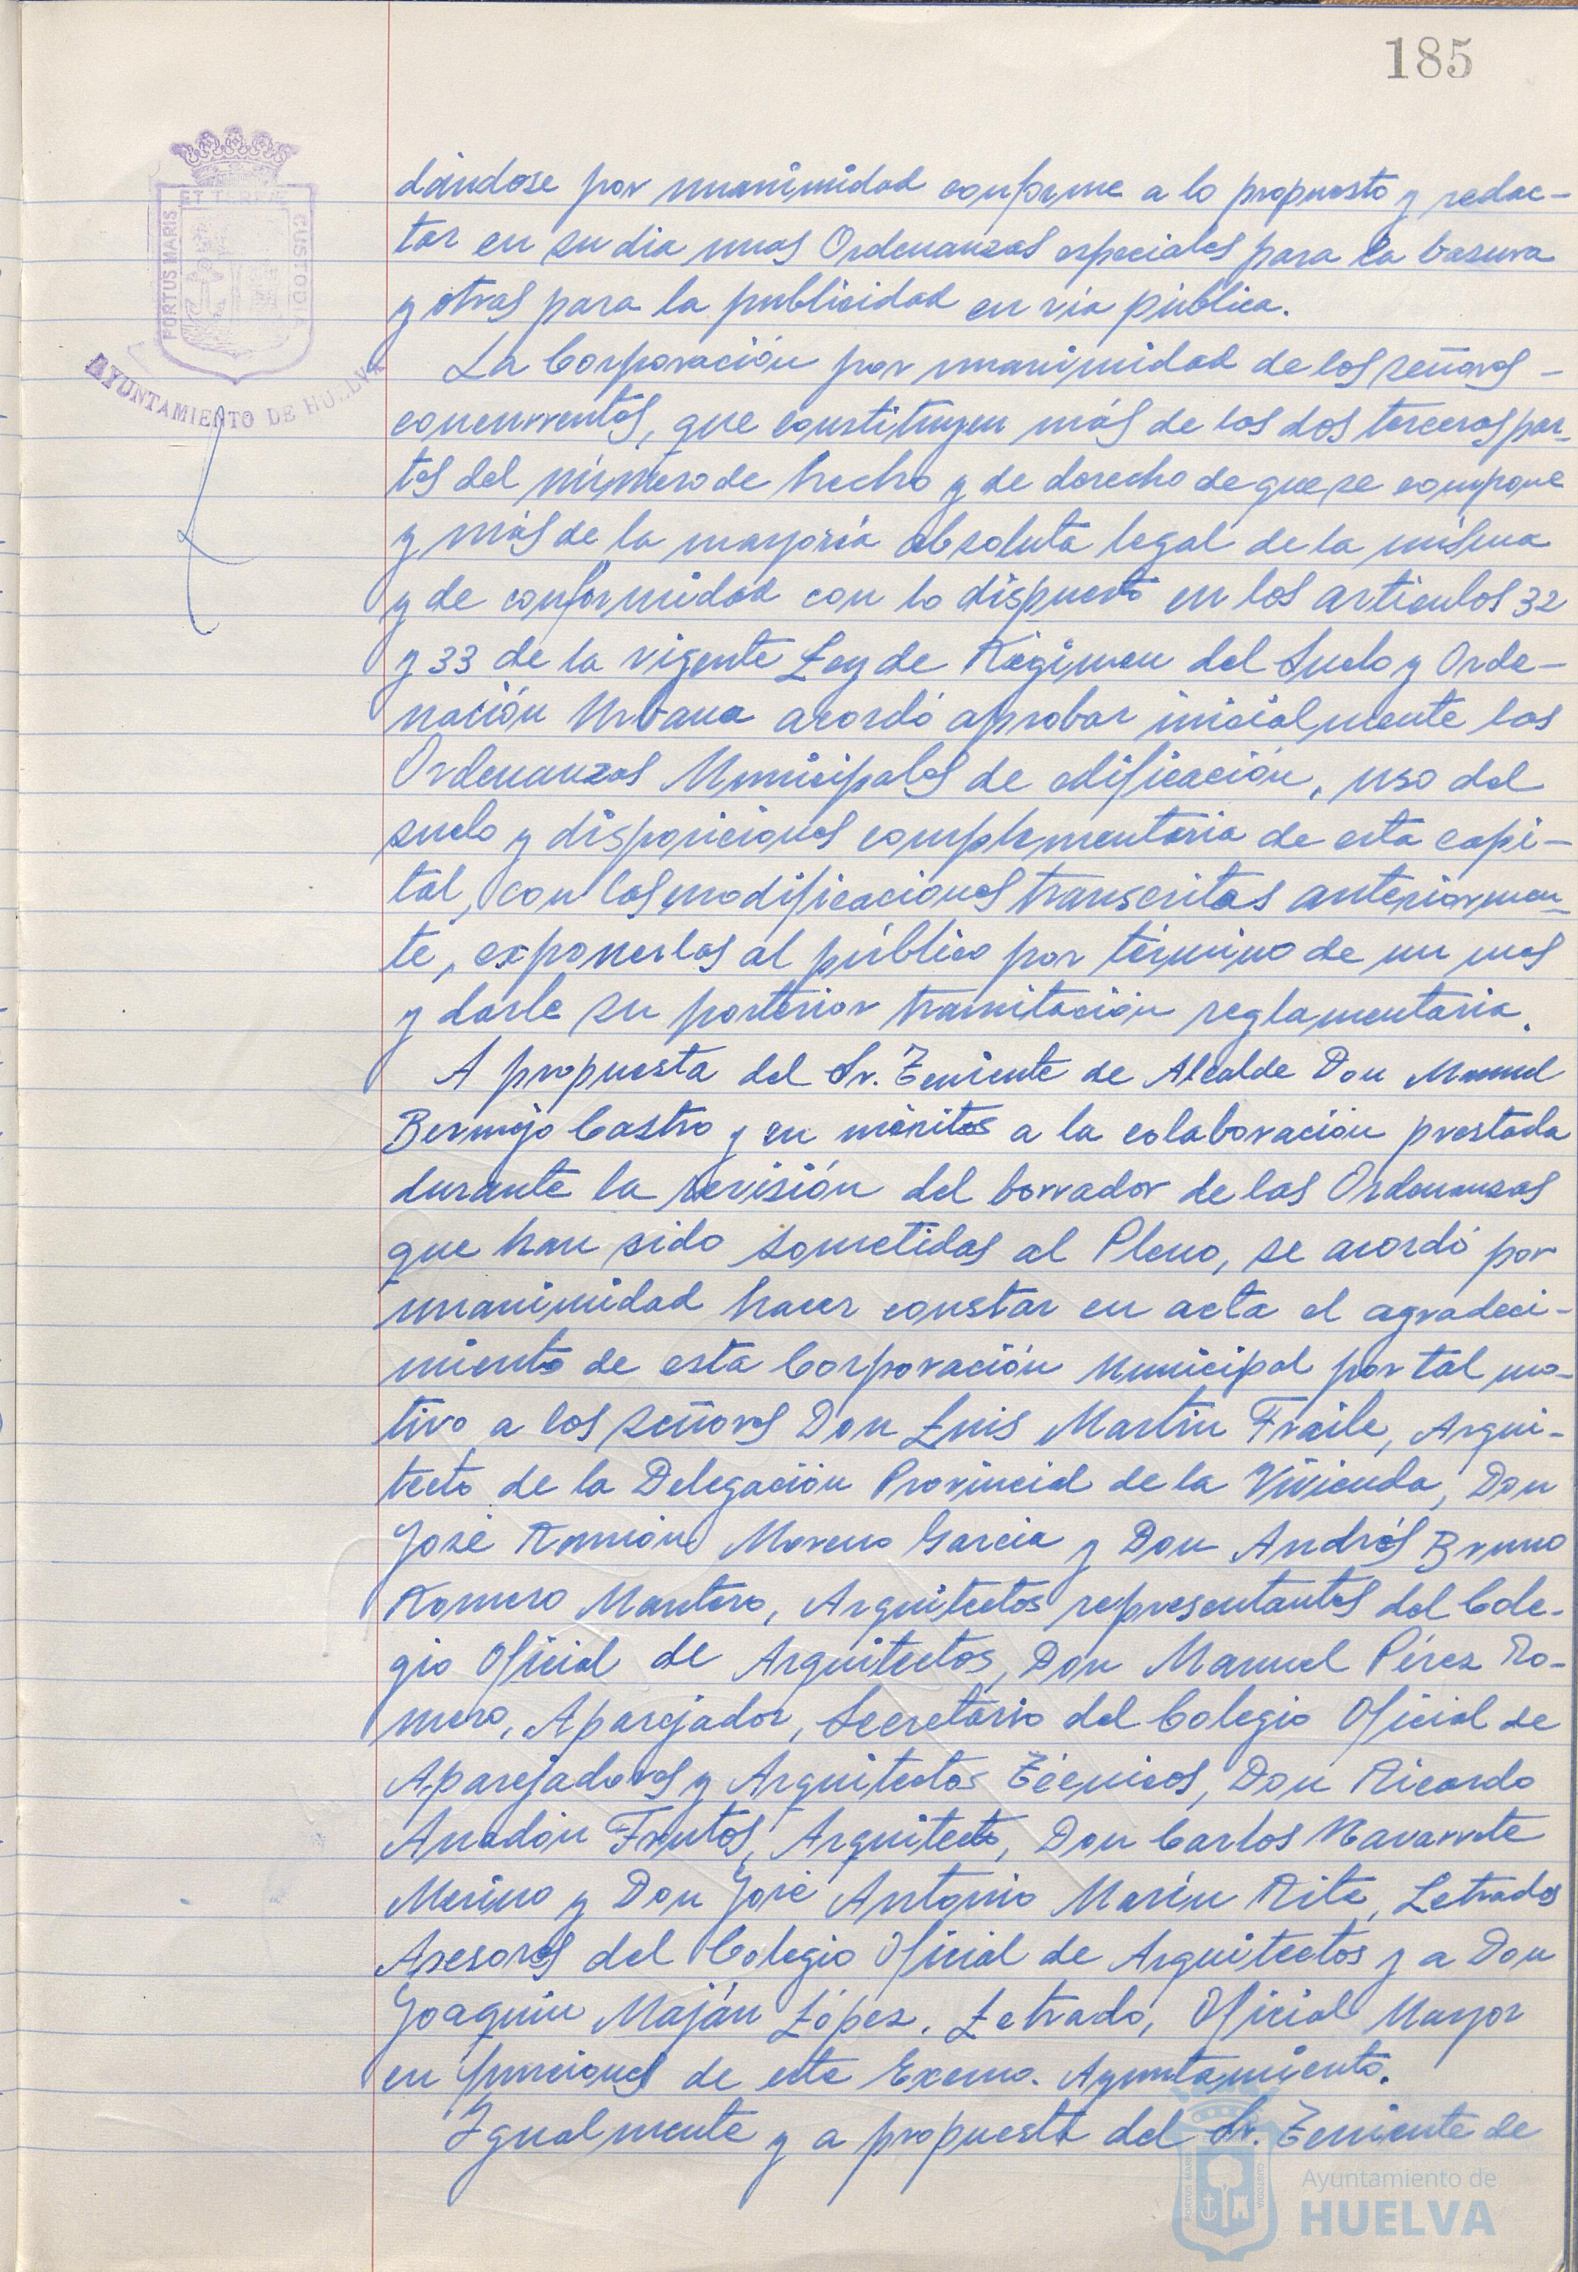 185
PORTUS MARIS
ET TERRAE
CUSTODIA
AYUNTAMIENTO DE HUELVA
dándose por unanimidad conforme a lo propuesto y redac-
tar en su dia unas Ordenanzas especiales para la basura
y otras para la publicidad en via pública.
La Corporación por unanimidad de los señores -
concurrentes, que constituyen más de las dos terceras par-
tes del número de hecho y de derecho de que se compone
y más de la mayoría absoluta legal de la misma
y de conformidad con lo dispuesto en los articulos 32
y 33 de la vigente Ley de Régimen del Suelo y Orde-
nación Urbana acordó aprobar inicialmente las
Ordenanzas Municipales de edificación, uso del
suelo y disposiciones complementaria de esta capi-
tal, con las modificaciones transcritas anteriormen-
te, exponerlas al público por término de un mes
y darle su posterior tramitación reglamentaria.
A propuesta del Sr. Teniente de Alcalde Don Manuel
Bermejo Castro y en méritos a la colaboración prestada
durante la revisión del borrador de las Ordenanzas
que han sido sometidas al Pleno, se acordó por
unanimidad hacer constar en acta el agradeci-
miento de esta Corporación Municipal por tal mo-
tivo a los señores Don Luis Martin Fraile, Arqui-
tecto de la Delegación Provincial de la Vivienda, Don
José Ramón Moreno Garcia y Don Andrés Bruno
Romero Mantero, Arquitectos representantes del Cole-
gio Oficial de Arquitectos, Don Manuel Pérez Ro-
mero, Aparejador, Secretario del Colegio Oficial de
Aparejadores y Arquitectos Técnicos, Don Ricardo
Anadón Frutos, Arquitecto, Don Carlos Navarrete
Merino y Don José Antonio Marín Rite, Letrados
Asesores del Colegio Oficial de Arquitectos y a Don
Joaquin Maján López, Letrado, Oficial Mayor
en funciones de este Excmo. Ayuntamiento.
Igualmente y a propuesta del Sr. Teniente de
Ayuntamiento de
HUELVA